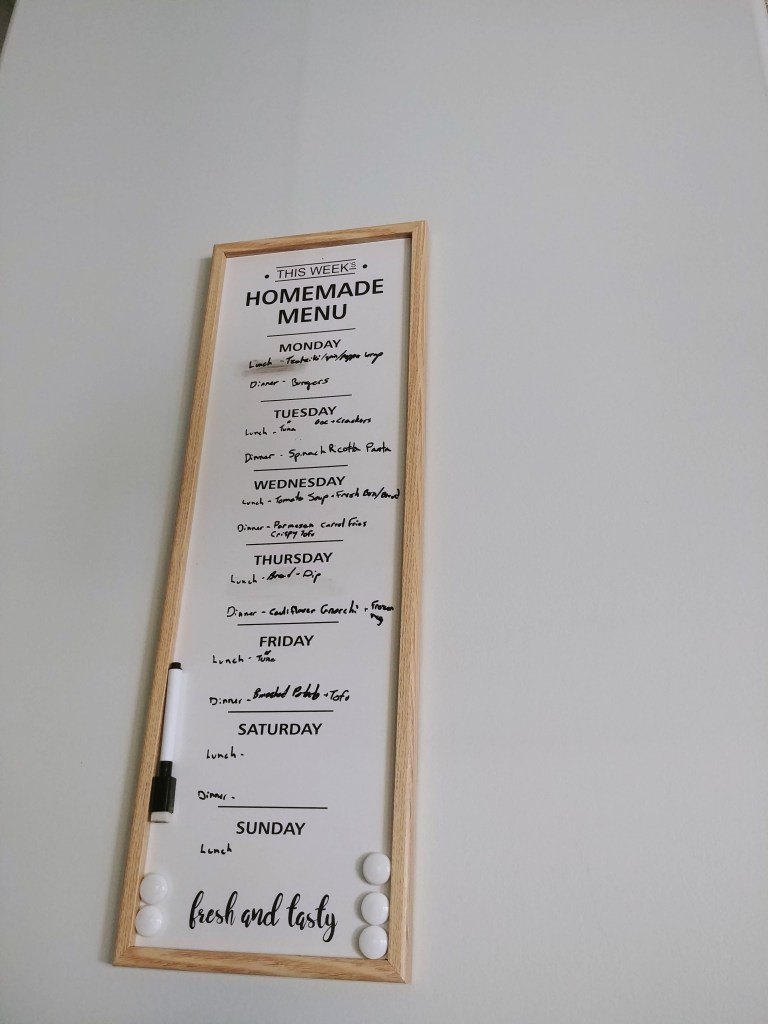 THIS WEEK'S
HOMEMADE
MENU
MONDAY
Lunch - Tzatziki/ wrap
Dinner - Burgers
TUESDAY
Lunch - "Tuna" + Crackers
Dinner - Spinach Ricotta Pasta
WEDNESDAY
Lunch - Tomato Soup + Fresh
Dinner - Parmesan Carrot Fries
Crispy Tofu
THURSDAY
Lunch - Bread + Dip
Dinner - Cauliflower Gnocchi + Frozen
FRIDAY
Lunch - "Tuna"
Dinner - Potato + Tofu
SATURDAY
Lunch -
Dinner -
SUNDAY
Lunch
fresh and tasty